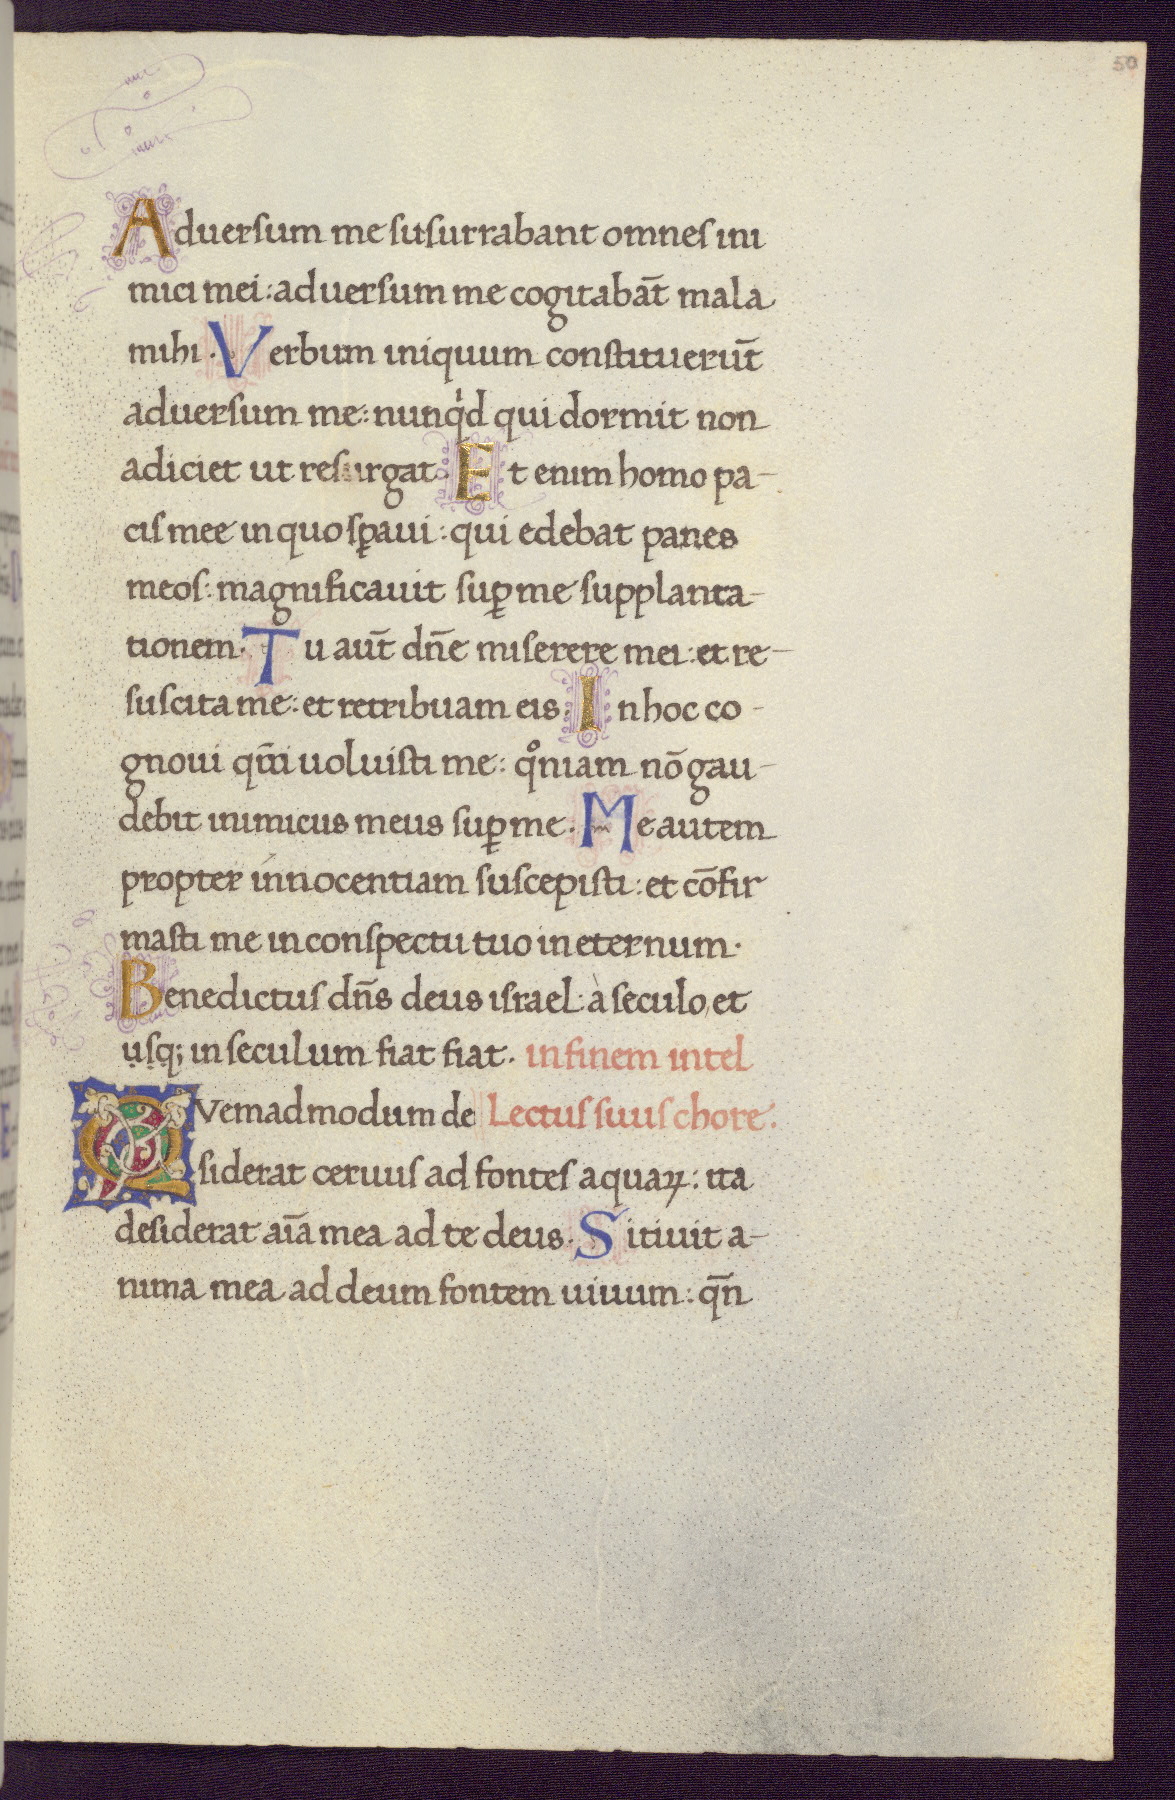 50
Aduersum me sisurrabant omnes ini
mici mei: aduersum me cogitabāt mala
mihi. Verbum iniquum constituerūt
aduersum me: nunqͥd qui dormit non
adiciet ut resurgat. Et enim homo pa-
cis mee in quo sꝑaui: qui edebat panes
meos: magnificauit suꝑ me supplanta-
tionem. Tu aut̄ dn̄e miserere mei: et re-
suscita me: et retribuam eis: In hoc co-
gnoui qm̄i uoluisti me: qͦniam nō gau-
debit inimicus meus suꝑ me. Me autem
propter innocentiam suscepisti: et cōfir
masti me in conspectu tuo in eternum.
Benedictus dn̄s deus israel: à seculo, et
usq; in seculum fiat fiat. in finem intel
Quemadmodum de Lectus suus chore.
siderat ceruus ad fontes aquaꝝ: ita
desiderat aīa mea ad te deus. Sitiuit a-
nima mea ad deum fontem uiuum: qn̄